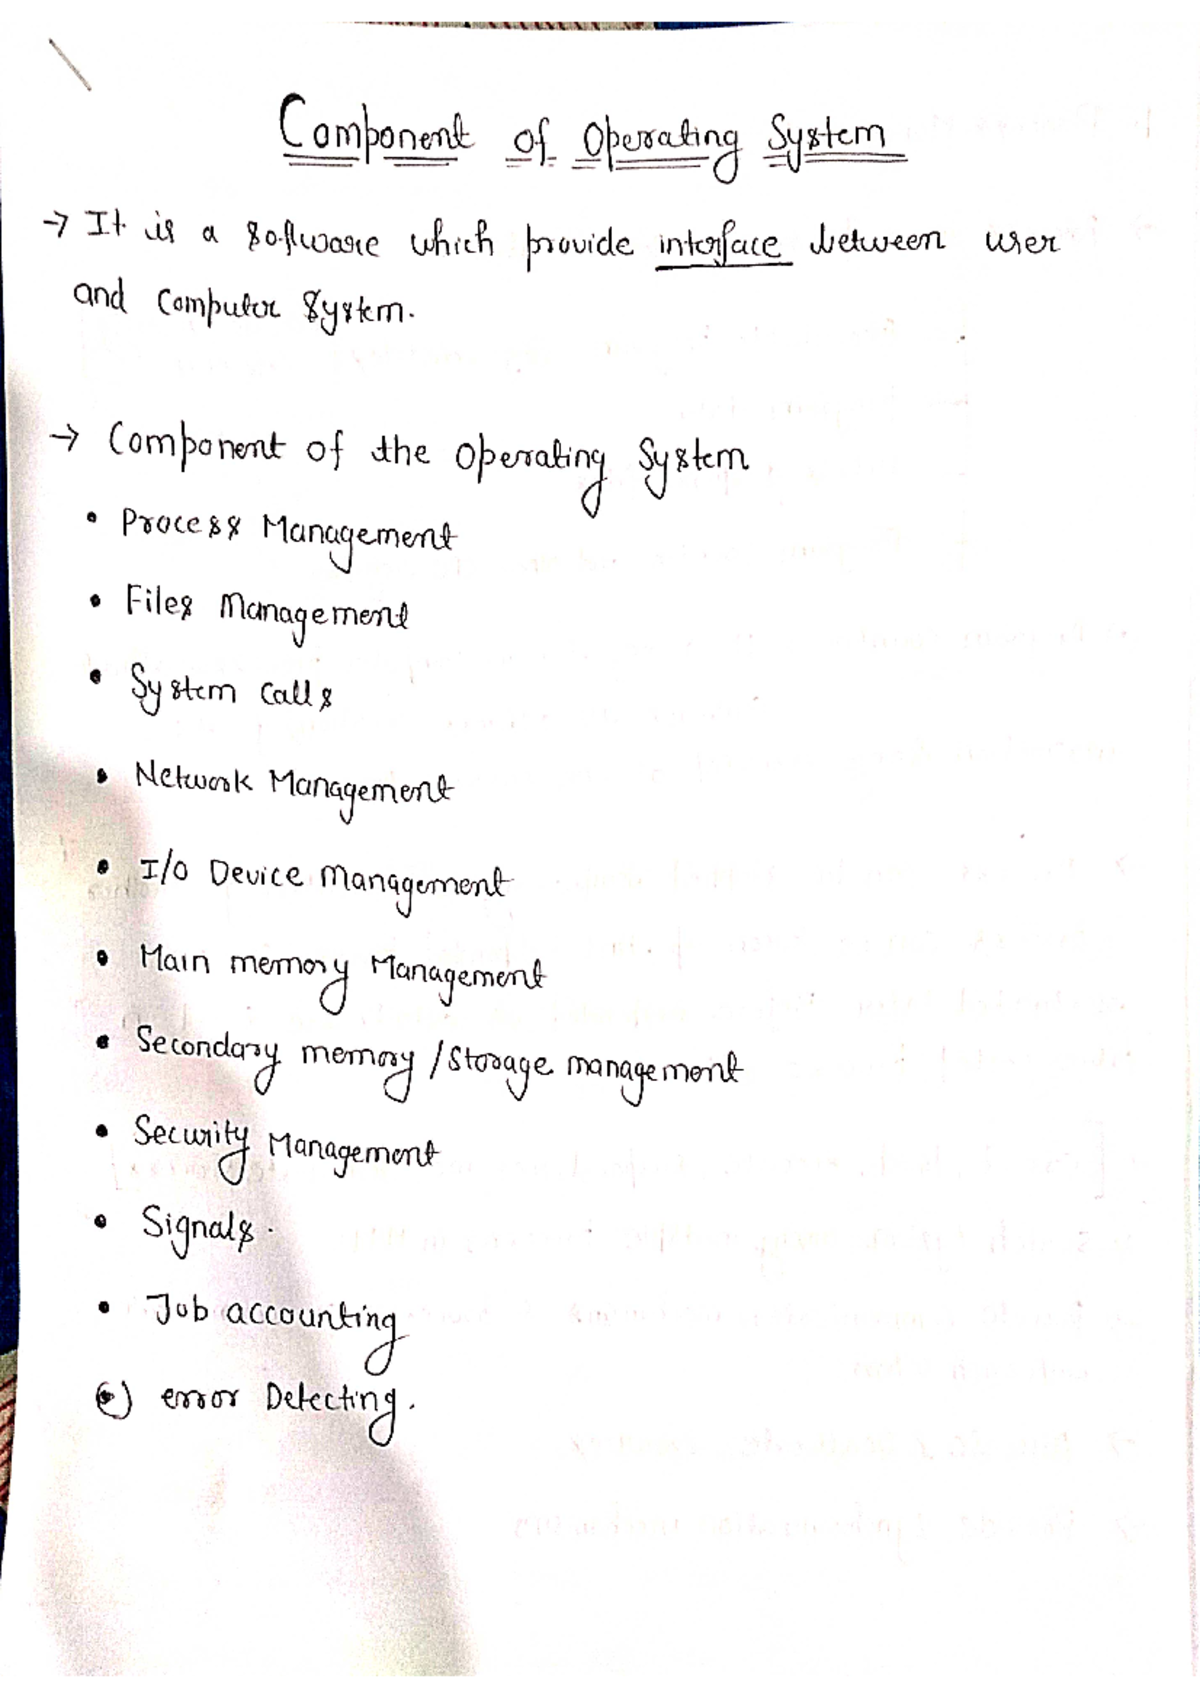 Component of Operating System
→ It is a software which provide interface between user
and Computer System.
→ Component of the operating System
• Process Management
• Files Management
• System Calls
• Network Management
• I/O Device Management
• Main memory Management
• Secondary memory / Storage management
• Security Management
• Signals.
• Job accounting
•) error Detecting.